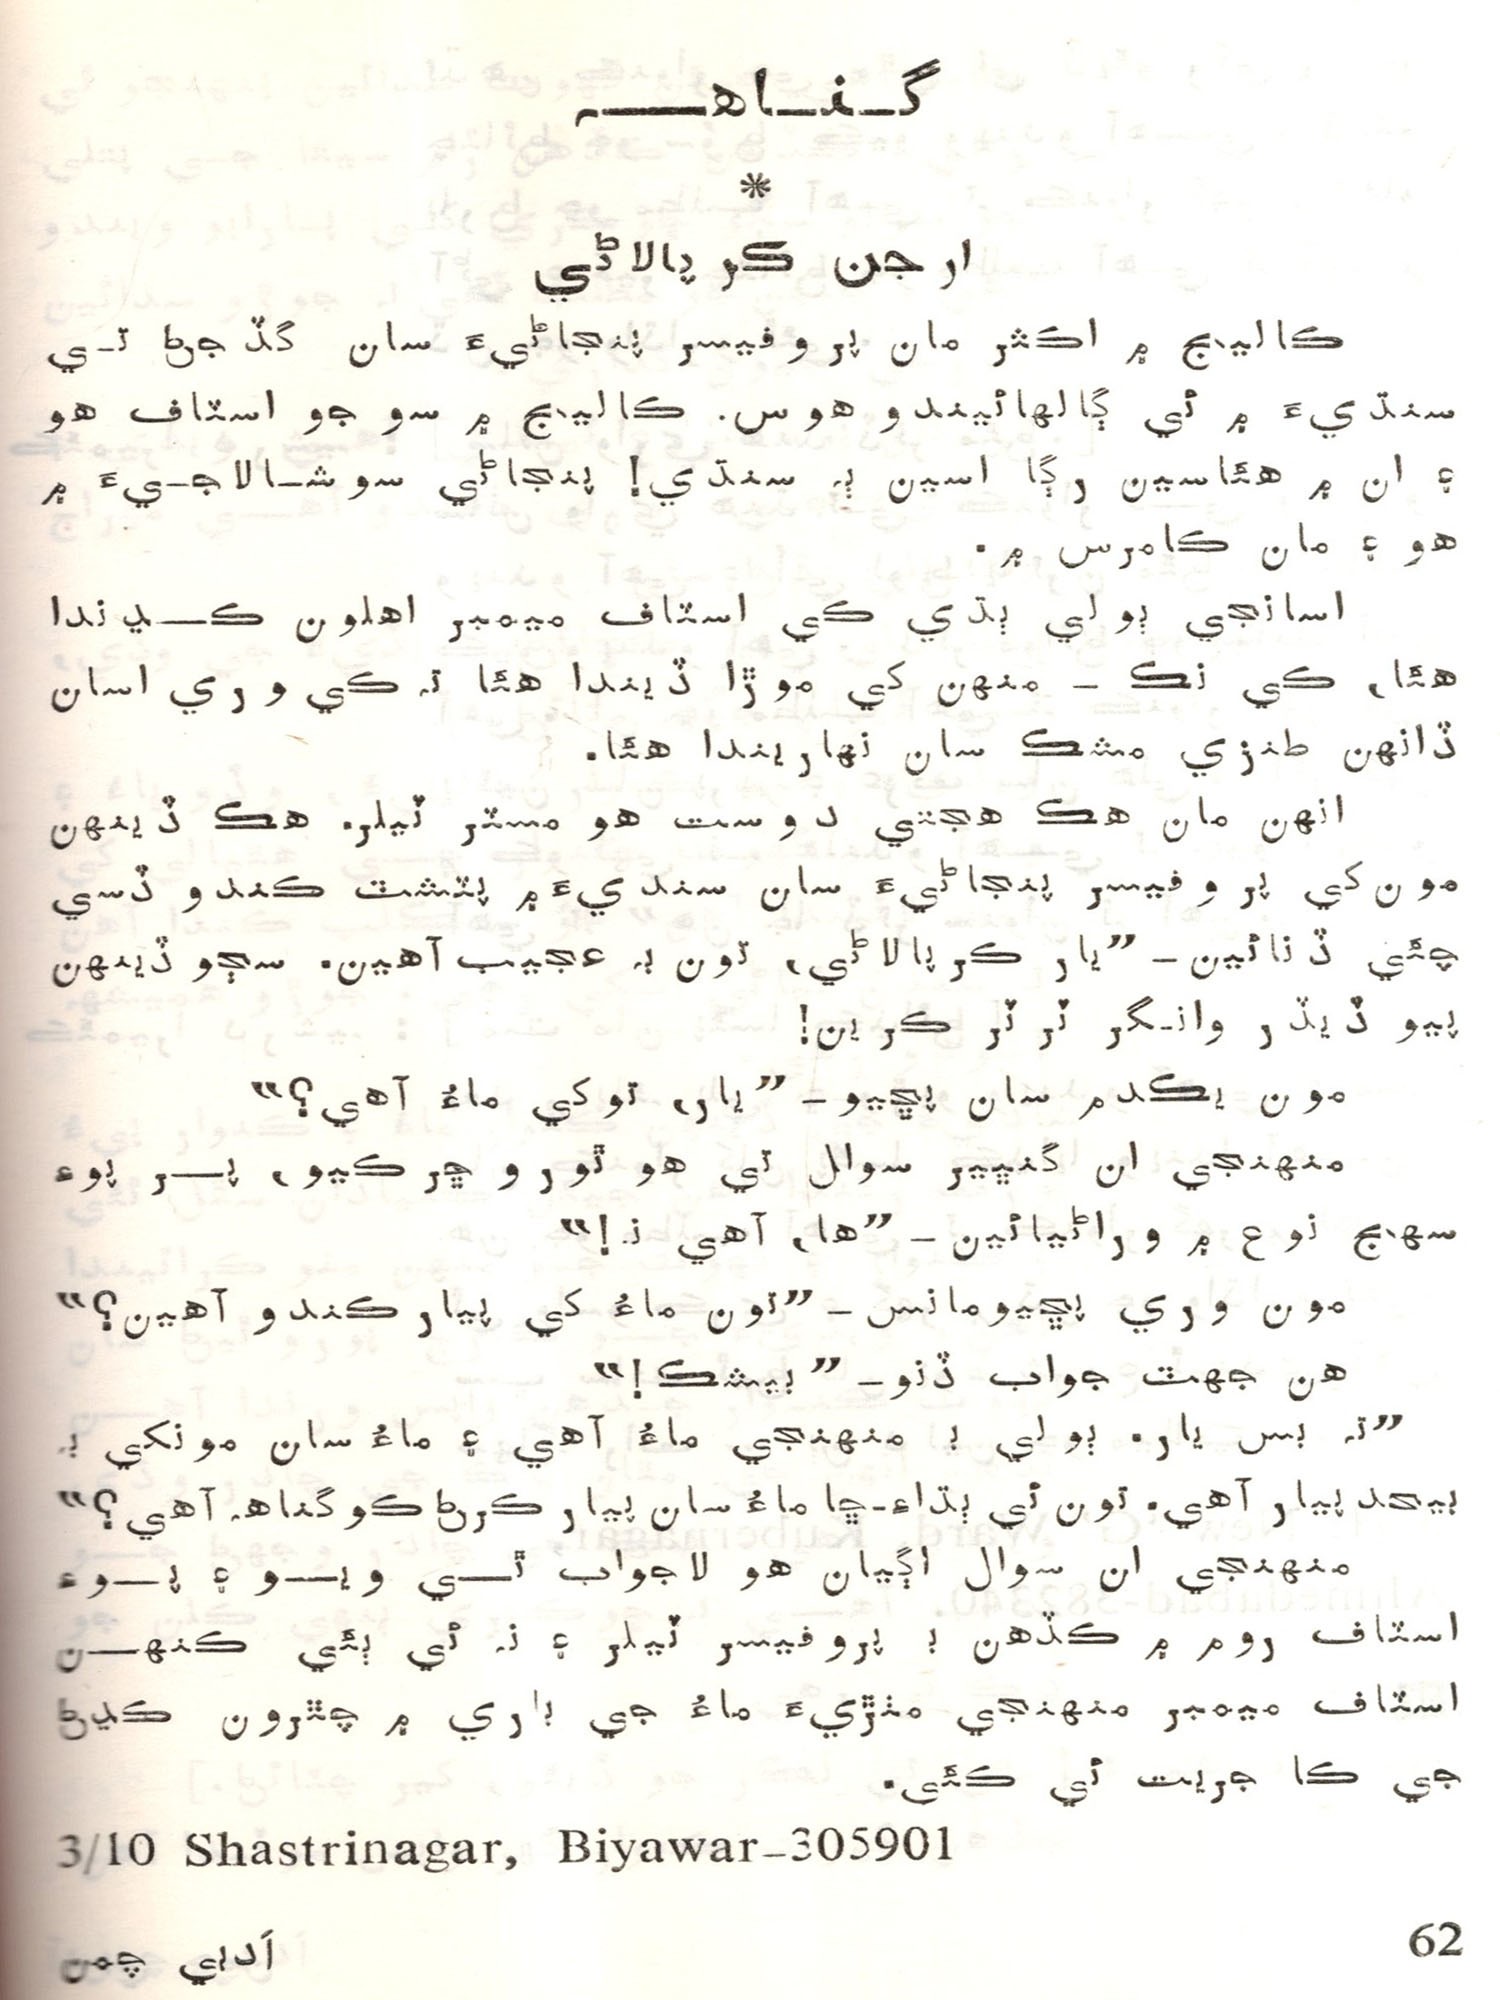 گناهہ
*
ارجن ڪرپالاڻي
ڪاليج ۾ اڪثر مان پروفيسر پنجاڻيءَ سان گڏجڻ تي
سنڌيءَ ۾ ئي ڳالهائيندو هوس. ڪاليج ۾ سو جو اسٽاف هو
۽ ان ۾ هئاسين رڳا اسين ٻہ سنڌي! پنجاڻي سوشالاجيءَ ۾
هو ۽ مان ڪامرس ۾.
اسانجي ٻولي ٻڌي ڪي اسٽاف ميمبر اهلون ڪيندا
هئا، ڪي نڪ - منهن کي موڙا ڏيندا هئا تہ ڪي وري اسان
ڏانهن طنزي مشڪ سان نهاريندا هئا.
انهن مان هڪ هجتي دوست هو مسٽر ٽيلر. هڪ ڏينهن
مون کي پروفيسر پنجاڻيءَ سان سنڌيءَ ۾ پٽشٽ ڪندو ڏسي
چئي ڏنائين- ”يار ڪرپالاڻي، تون بہ عجيب آهين. سڄو ڏينهن
پيو ڏيڏر وانگر ٽر ٽر ڪرين!
مون يڪدم سان پڇيو- ”يار، توکي ماءُ آهي؟“
منهنجي ان گنڀير سوال تي هو ٿورو ڇرڪيو، پر پوءِ
سهج نوع ۾ وراڻيائين - ”ها، آهي نہ!“
مون وري پڇيومانس - ”تون ماءُ کي پيار ڪندو آهين؟“
هن جهٽ جواب ڏنو- ”بيشڪ!“
”تہ بس يار. ٻولي بہ منهنجي ماءُ آهي ۽ ماءُ سان مونکي بہ
بيحد پيار آهي. تون ئي ٻڌاءِ-ڇا ماءُ سان پيار ڪرڻ ڪو گناهہ آهي؟“
منهنجي ان سوال اڳيان هو لاجواب ٿي ويو ۽ پوءِ
اسٽاف روم ۾ ڪڏهن بہ پروفيسر ٽيلر ۽ نہ ئي ٻئي ڪنهن
اسٽاف ميمبر منهنجي مٺڙيءَ ماءُ جي باري ۾ چٿرون ڪيڻ
جي ڪا جريت ئي ڪئي.
3/10 Shastrinagar, Biyawar-305901
62
اَدبي چمن